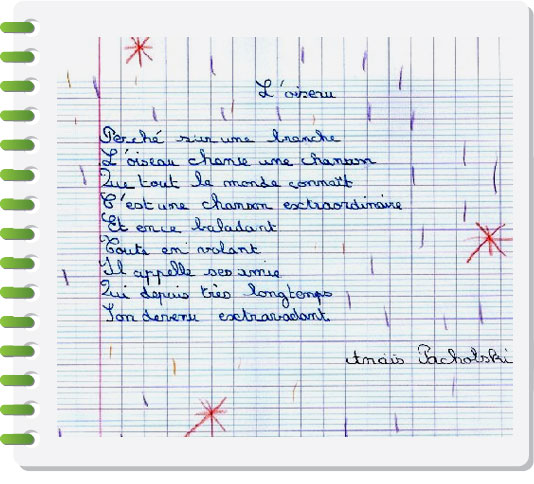 L'oiseau
Perché sur une branche
L'oiseau chante une chanson
Que tout le monde connaît
C'est une chanson extraordinaire
Et en ce baladant
Tout en volant
Il appelle ses amie
Qui depuis très longtemps
Son devenu extravadant
Anaïs Pacholski